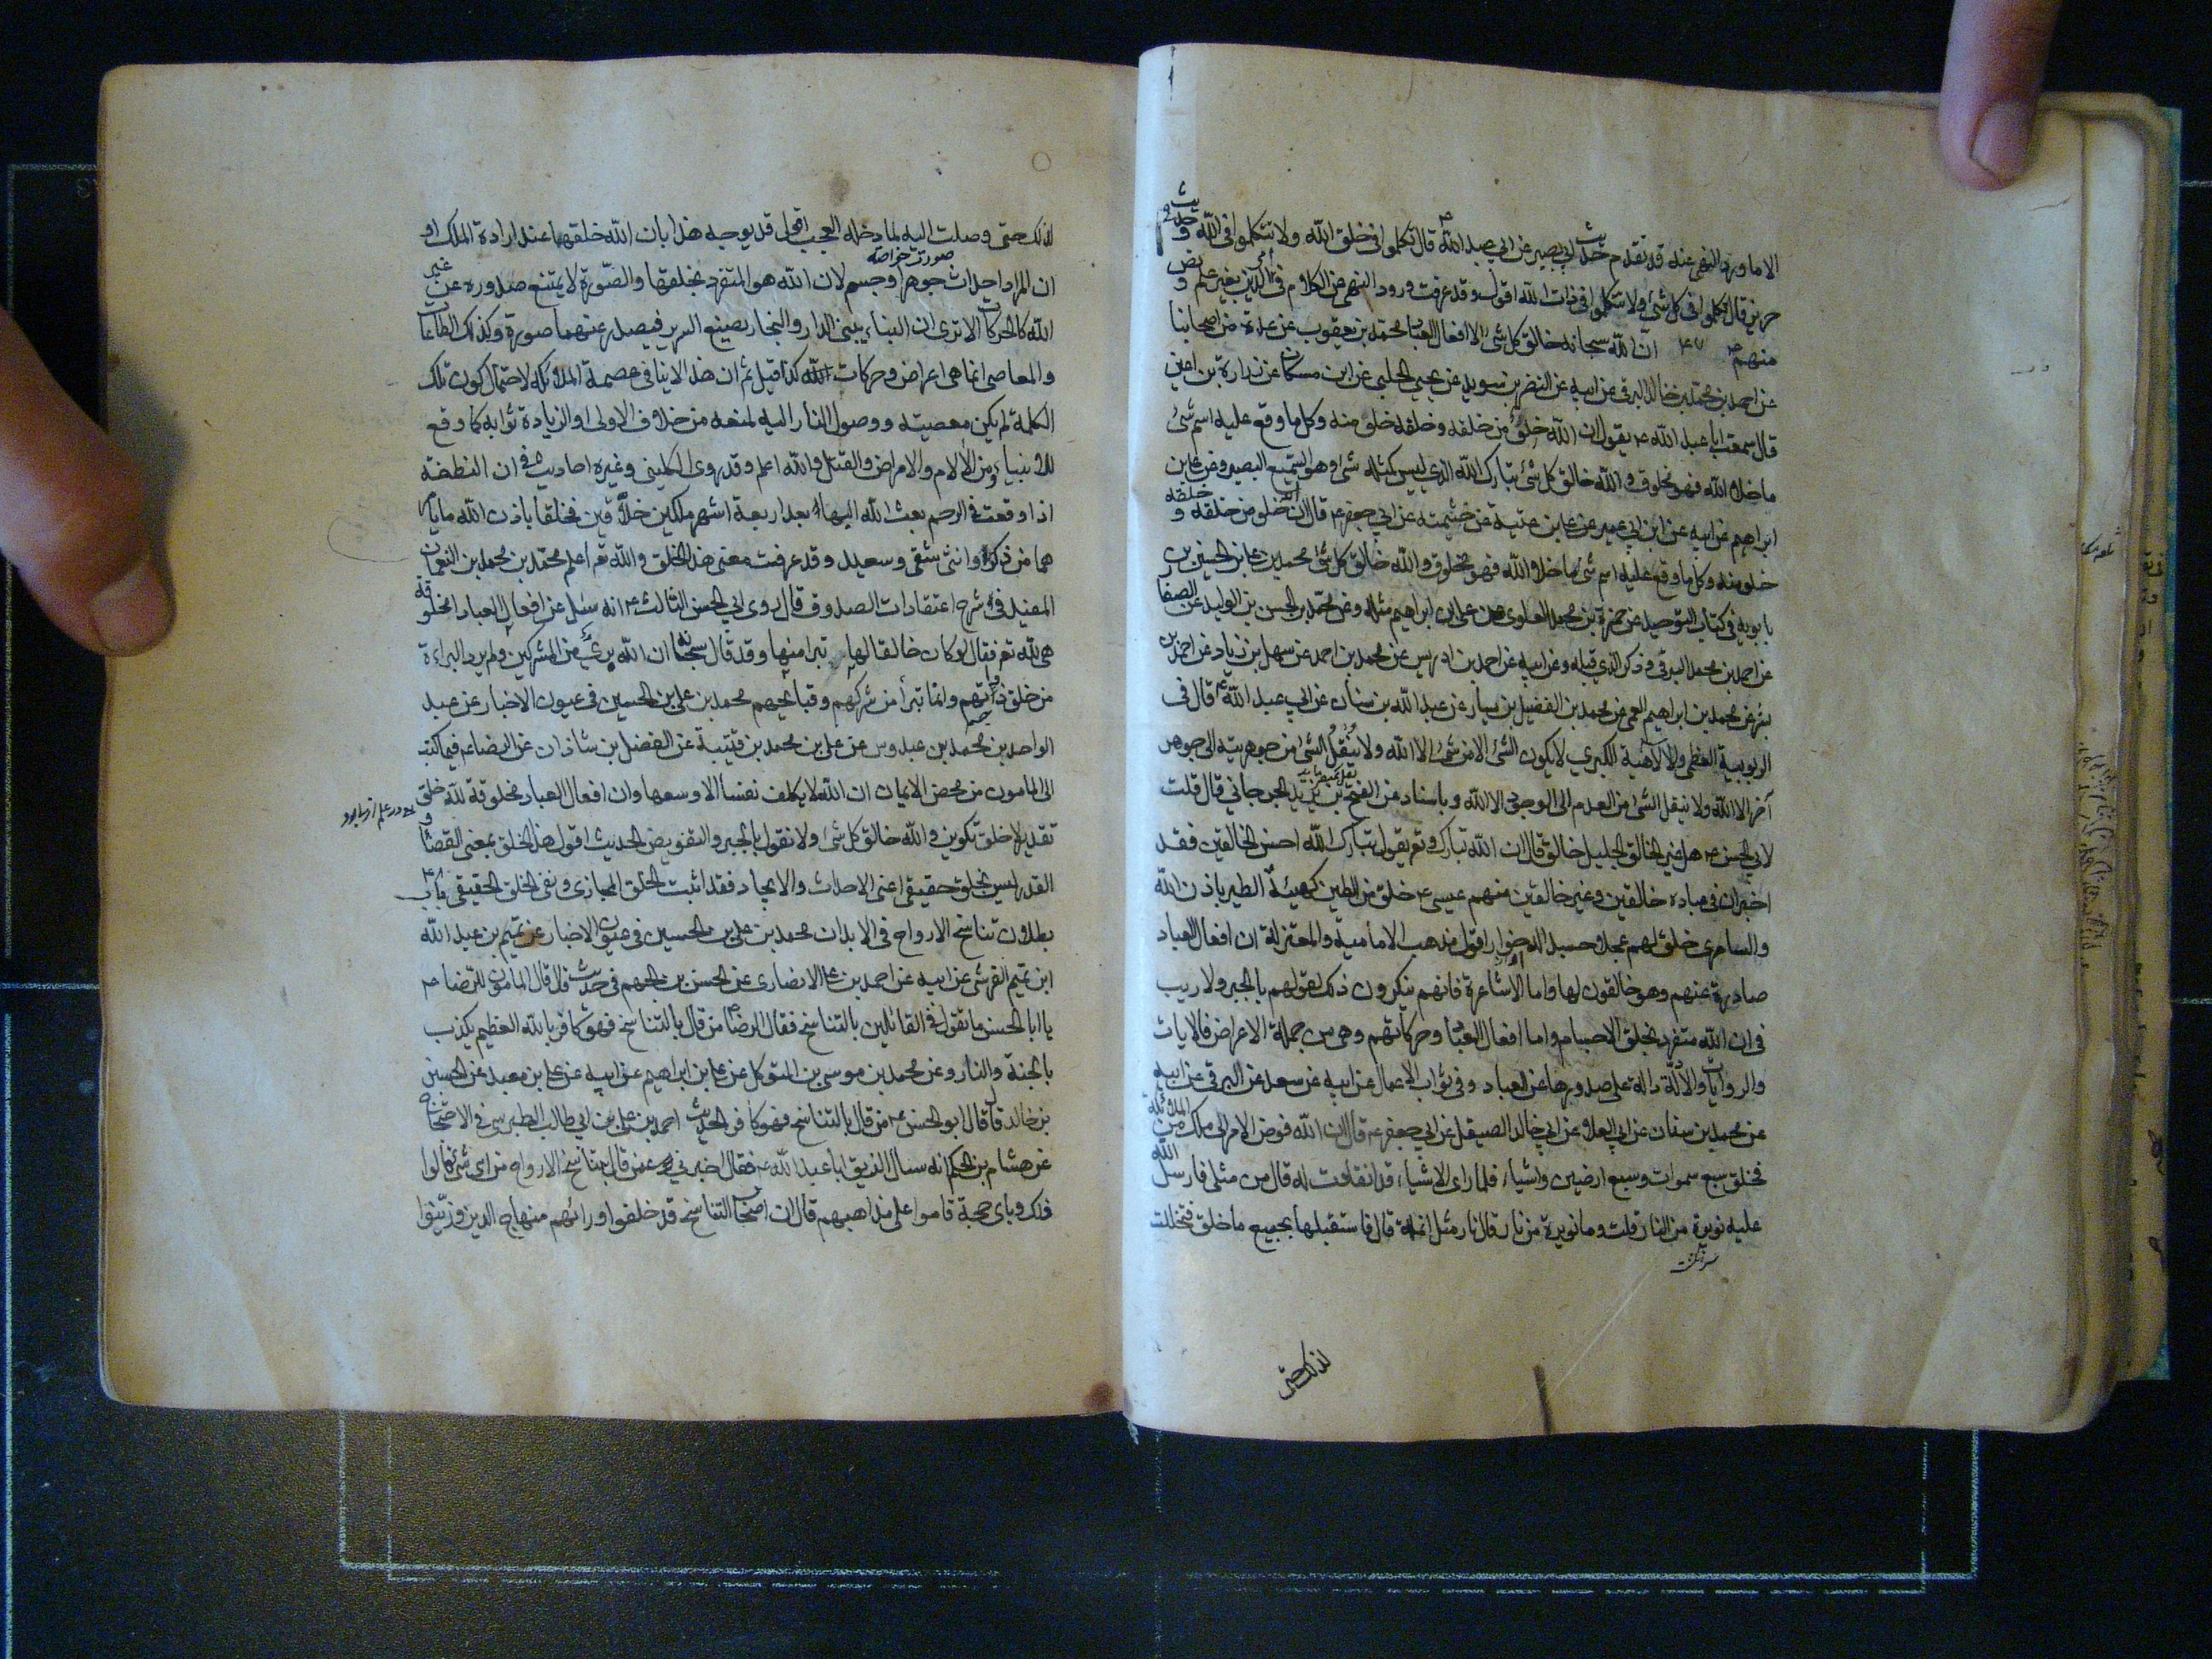 الا ما ورد النهى عنه قد تقدم حديث ابي بصير عن ابي عبد الله ع قال تكلموا فى خلق الله ولا تتكلموا فى الله وحديث
حريز قال تكلموا فى كل شئ ولا تتكلموا فى ذات الله اقول وقد عرفت ورود النهى عن الكلام فى الدين بغير علم و
منهم ع ٤٧ ان الله سبحانه خالق كل شئ الا افعال العباد محمد بن يعقوب عن عدة من اصحابنا
عن احمد بن محمد بن خالد البرقى عن ابيه عن النضر بن سويد عن يحيى الحلبي عن ابن مسكان عن زرارة بن اعين
قال سمعت ابا عبد الله ع يقول ان الله خلو من خلقه وخلقه خلو منه وكل ما وقع عليه اسم شئ
ما خلا الله فهو مخلوق والله خالق كل شئ تبارك الله الذي ليس كمثله شئ وهو السميع البصير وعن على بن
ابراهيم عن ابيه عن ابن ابي عمير عن على بن عطية عن خيثمة عن ابي جعفر ع قال ان الله خلو من خلقه و خلقه
خلو منه وكل ما وقع عليه اسم شئ ما خلا الله فهو مخلوق والله خالق كل شئ محمد بن على بن الحسين بن
بابويه فى كتاب التوحيد عن حمزة بن محمد العلوى عن على بن ابراهيم مثله وعن محمد بن الحسن بن الوليد عن الصفار
عن احمد بن محمد البرقى وذكر الذي قبله وعن ابيه عن احمد بن ادريس عن محمد بن احمد عن سهل بن زياد عن احمد بن
بشر عن محمد بن ابراهيم العمى عن محمد بن الفضيل بن سيار عن عبد الله بن سنان عن ابي عبد الله ع قال فى
الربوبية العظمى والالاهية الكبرى لا يكون الشئ الا من شئ الا الله ولا ينقل الشئ من جوهريته الى جوهر
آخر الا الله ولا ينقل الشئ من العدم الى الوجود الا الله وباسناده عن الفتح بن يزيد الجرجاني قال قلت
لابي الحسن ع هل غير الخالق الجليل خالق قال ان الله تبارك وتع يقول تبارك الله احسن الخالقين فقد
اخبر ان فى عباده خالقين وغير خالقين منهم عيسى ع خلق من الطين كهيئة الطير باذن الله
والسامرى خلق لهم عجلا جسدا له خوار اقول مذهب الامامية والمعتزلة ان افعال العباد
صادرة عنهم وهو خالقون لها واما الاشاعرة فانهم ينكرون ذلك لقولهم بالجبر ولا ريب
فى ان الله متفرد بخلق الاجسام واما افعال العباد وحركاتهم وهى من جملة الاعراض فالايات
والروايات والادلة دالة على صدورها عن العباد وفى ثواب الاعمال عن ابيه عن سعد عن البرقى عن ابيه
عن محمد بن سنان عن ابي العلا عن ابي خالد الصيقل عن ابي جعفر ع قال ان الله فوض الامر الى ملك من الملائكة
فخلق سبع سموات وسبع ارضين واشياء فلما راى الاشياء قد انقادت له قال من مثلى فارسل الله
عليه نويرة من النار قلت وما نويرة من نار قال نار مثل انملة قال فاستقبلها بجميع ما خلق فتخللت
لذلك حتى
لذلك حتى وصلت اليه لما دخله العجب اقول قد يوجه هذا بان الله خلقهما عند ارادة الملك او
ان المراد احداث جوهر او جسم لان الله هو المتفرد بخلقها والصورة لا يمتنع صدوره عن غير
الله كالحركات الا ترى ان البناء يبنى الدار والنجار يصنع السرير فيصدر عنهما صورة وكذلك الطاعات
والمعاصى انما هى اعراض وحركات كذا قيل ثم ان هذا لا ينافى عصمة الملائكة لاحتمال كون تلك
الكلمة لم يكن معصية ووصول النار اليه لمنعه من خلاف الاولى او لزيادة ثوابه كما وقع
للانبياء من الآلام والامراض والقتل والله اعلم وقد روى الكلينى وغيره احاديث فى ان النطفة
اذا وقعت فى الرحم بعث الله اليها بعد اربعة اشهر ملكين خلاقين فخلقا باذن الله ما يأ
هما من ذكر او انثى شقى وسعيد وقد عرفت معنى هذا الخلق والله تع اعلم محمد بن محمد بن النعمان
المفيد فى شرح اعتقادات الصدوق قال روى عن ابي الحسن الثالث ع انه سئل عن افعال العباد امخلوقة
هى لله تع فقال لو كان خالقا لها لما تبرا منها وقد قال سبحانه ان الله برئ من المشركين ولم يرد البراءة
من خلق ذواتهم وانما تبرأ من شركهم وقبائحهم محمد بن على بن الحسين فى عيون الاخبار عن عبد
الواحد بن محمد بن عبدوس عن على بن محمد بن قتيبة عن الفضل بن شاذان عن الرضا ع فيما كتب
الى المامون من محض الايمان ان الله لا يكلف نفسا الا وسعها وان افعال العباد مخلوقة لله خلق
تقدير لا خلق تكوين والله خالق كل شئ ولا نقول بالجبر والتفويض الحديث اقول هذا الخلق بمعنى القضاء و
القدر ليس بخلق حقيقى اعنى الاحداث والايجاد فقد اثبت الخلق المجازى ونفى الخلق الحقيقى باب ٤٨
بطلان تناسخ الارواح فى الابدان محمد بن على بن الحسين فى عيون الاخبار عن تميم بن عبد الله
ابن تميم القرشى عن ابيه عن احمد بن على الانصارى عن الحسن بن الجهم فى حديث قال قال المامون للرضا ع
يا ابا الحسن ما تقول فى القائلين بالتناسخ فقال الرضا ع من قال بالتناسخ فهو كافر بالله العظيم يكذب
بالجنة والنار وعن محمد بن موسى بن المتوكل عن على بن ابراهيم عن ابيه عن على بن معبد عن الحسين
بن خالد قال قال ابو الحسن ع من قال بالتناسخ فهو كافر الحديث احمد بن على بن ابي طالب الطبرسى فى الاحتجاج
عن هشام بن الحكم انه سال الزنديق ابا عبد الله ع فقال اخبرنى عمن قال بتناسخ الارواح من اى شئ قالوا
ذلك وباى حجة قاموا على مذاهبهم قال ان اصحاب التناسخ قد خلفوا وراءهم منهاج الدين وزينوا